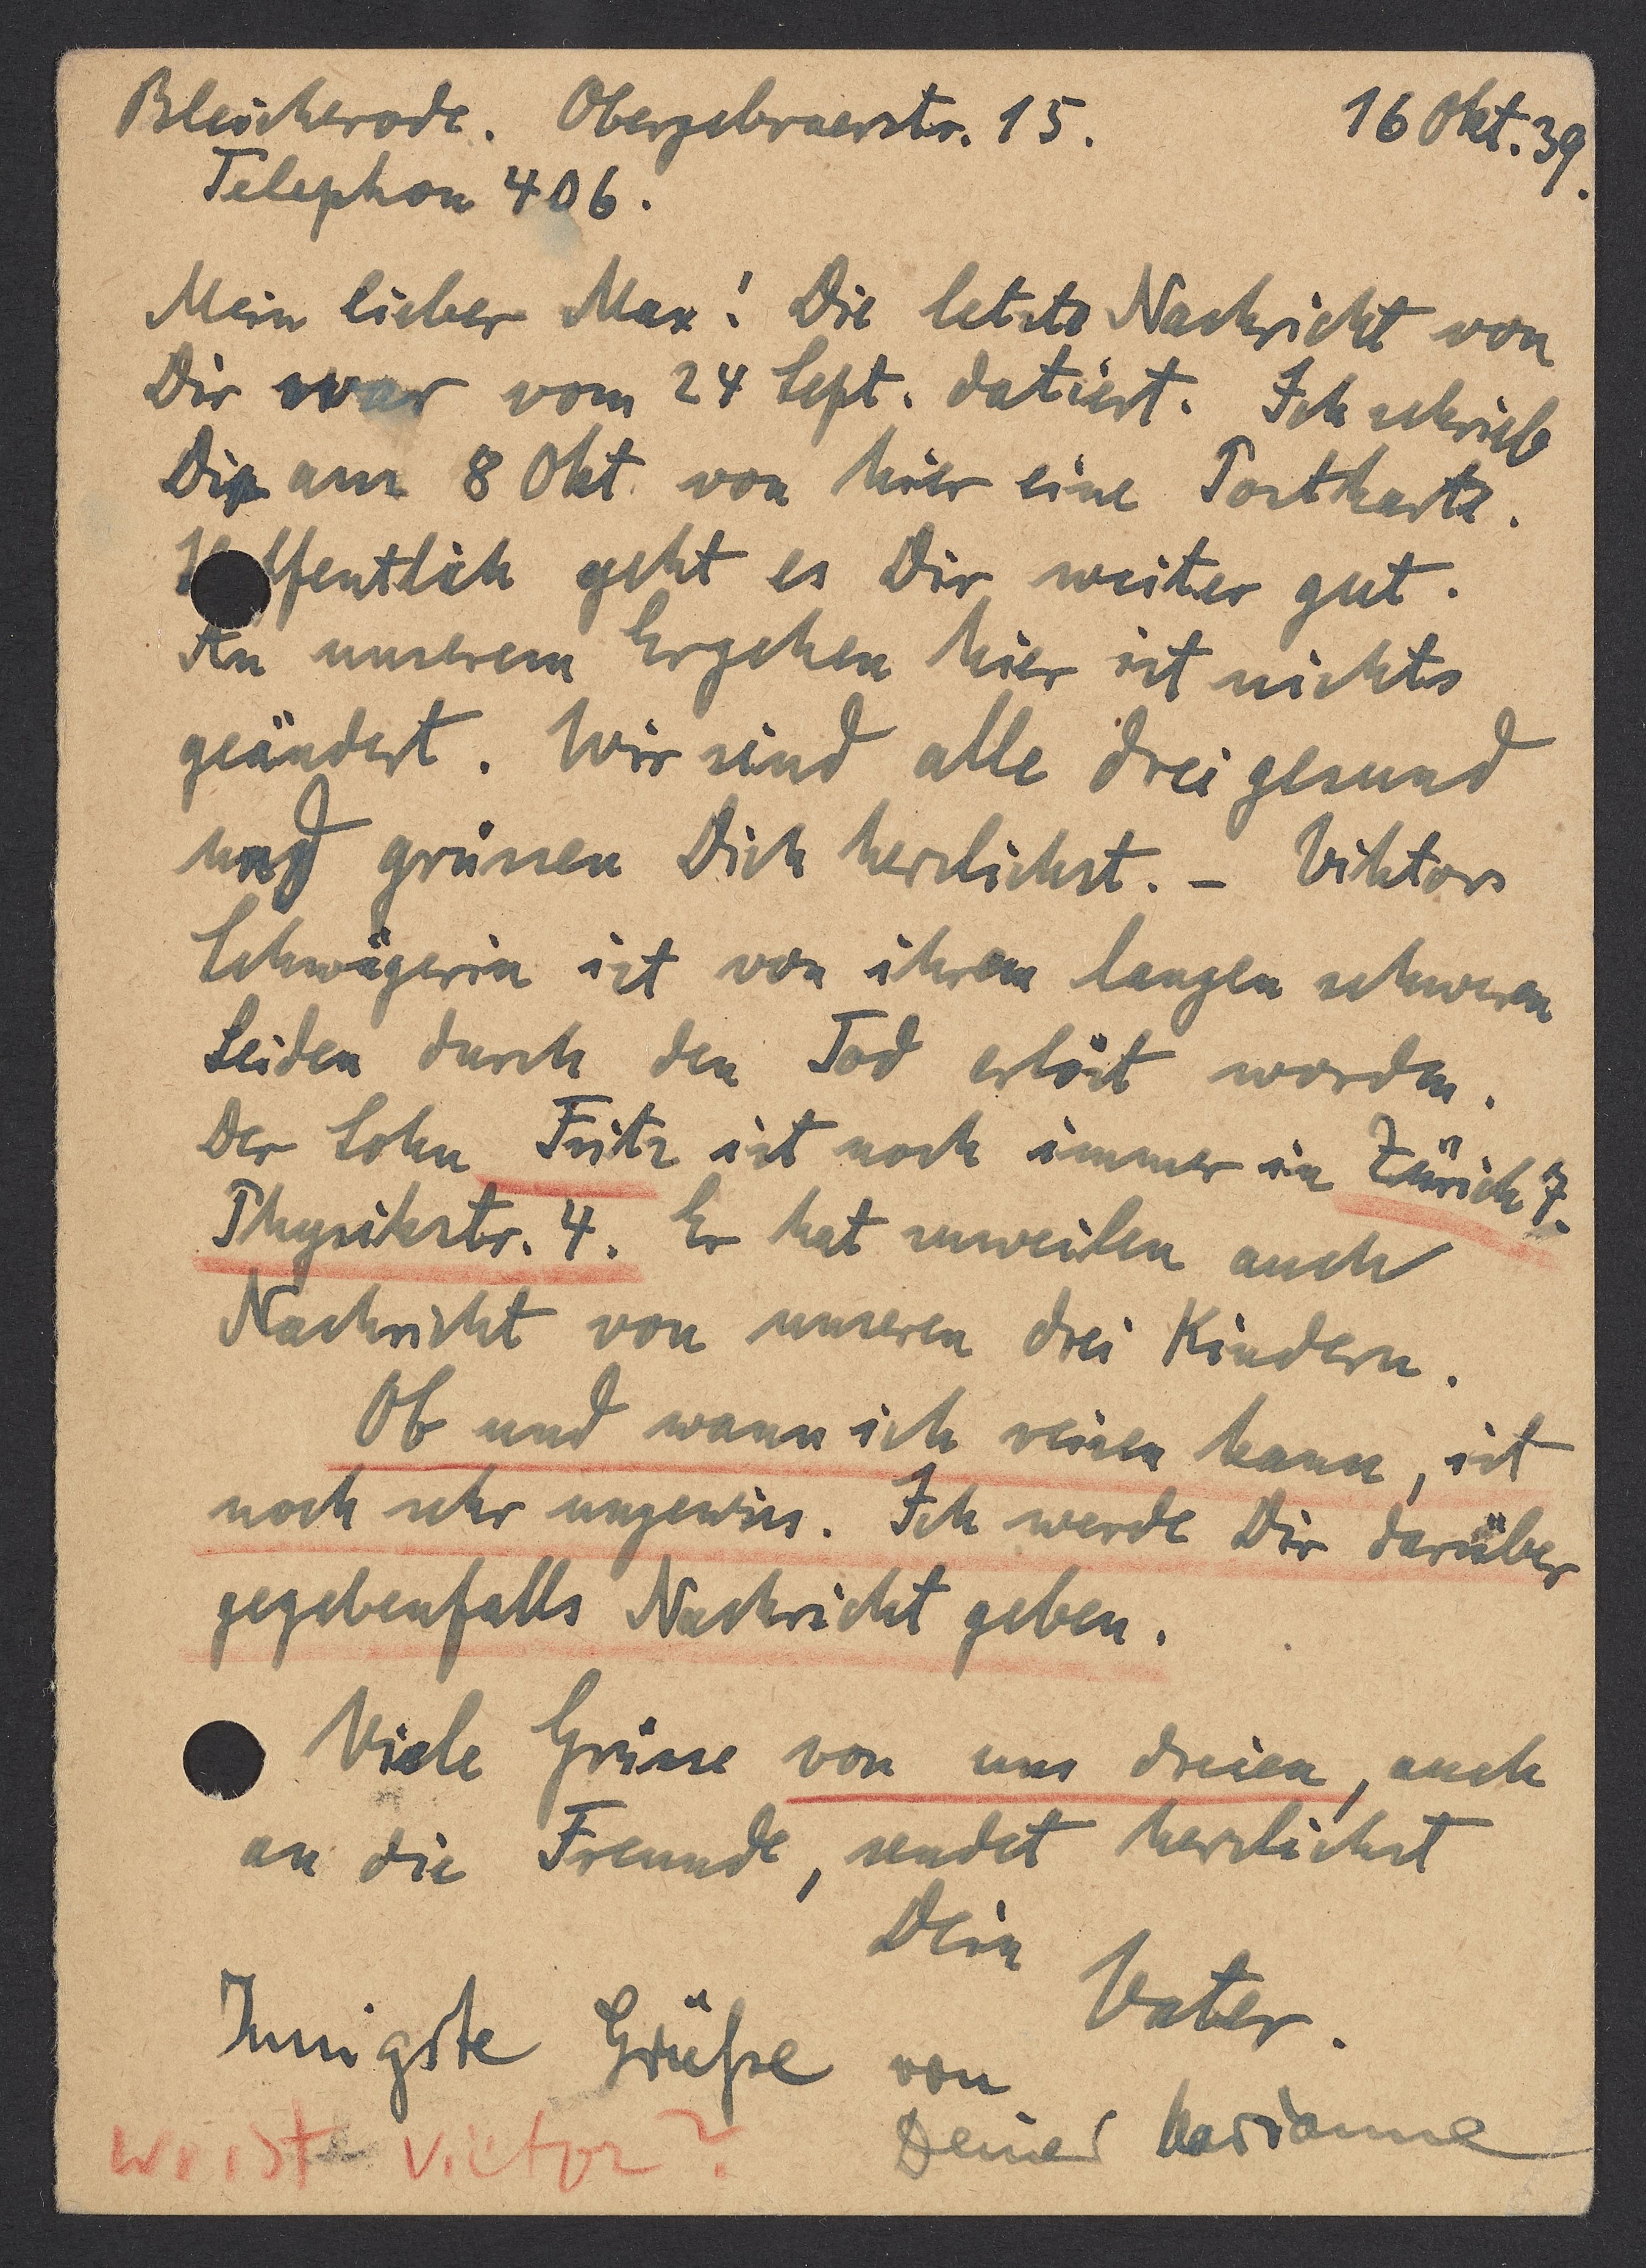 Bleicherode. Obergebraerstr. 15. 16 Okt. 39.
Telephon 406.
Mein lieber Max! Die letzte Nachricht von
Dir war vom 24 Sept. datiert. Ich schrieb
Dir am 8 Okt. von hier eine Postkarte.
Hoffentlich geht es Dir weiter gut.
An unserem Ergehen hier ist nichts
geändert. Wir sind alle drei gesund
und grüssen Dich herzlichst. – Viktors
Schwägerin ist von ihrem langen schweren
Leiden durch den Tod erlöst worden.
Der Sohn Fritz ist noch immer in Zürich 7.
Physikstr. 4. Er hat zuweilen auch
Nachricht von unseren drei Kindern.
Ob und wann ich reisen kann, ist
noch sehr ungewiss. Ich werde Dir darüber
gegebenfalls Nachricht geben.
Viele Grüsse von uns dreien, auch
an die Freunde, sendet herzlichst
Dein Vater.
Innigste Grüße von
Deiner Marianne
wo ist Victor?